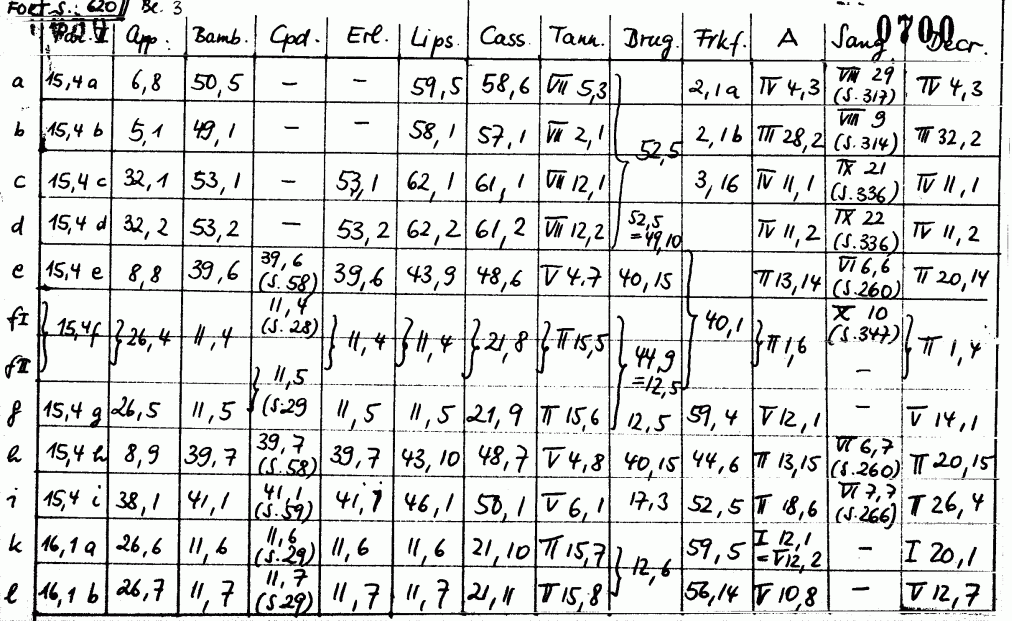 FORTS.: 620 Be. 3
0700
Par. II App. Bamb. Cpd. Erl. Lips. Cass. Tann. Brug. Frkf. A Sang. Decr.
a 15,4 a 6,8 50,5 – – 59,5 58,6 VII 5,3 2,1a IV 4,3 VIII 29 (S.317) IV 4,3
b 15,4 b 5,1 49,1 – – 58,1 57,1 VII 2,1 52,5 2,1b III 28,2 VIII 9 (S.314) III 32,2
c 15,4 c 32,1 53,1 – 53,1 62,1 61,1 VII 12,1 3,16 IV 11,1 IX 21 (S.336) IV 11,1
d 15,4 d 32,2 53,2 – 53,2 62,2 61,2 VII 12,2 52,5 =49,10 IV 11,2 IX 22 (S.336) IV 11,2
e 15,4 e 8,8 39,6 39,6 (S.58) 39,6 43,9 48,6 V 4,7 40,15 II 13,14 VI 6,6 (S.260) II 20,14
fI 15,4f 26,4 11,4 11,4 (S.28) 11,4 11,4 21,8 II 15,5 40,1 II 1,6 X 10 (S.347) II 1,4
fII 11,5 (S.29 44,9 =12,5 –
g 15,4 g 26,5 11,5 11,5 11,5 21,9 II 15,6 12,5 59,4 V 12,1 – V 14,1
h 15,4 h 8,9 39,7 39,7 (S.58) 39,7 43,10 48,7 V 4,8 40,15 44,6 II 13,15 VI 6,7 (S.260) II 20,15
i 15,4 i 38,1 41,1 41,1 (S.59) 41,1 46,1 50,1 V 6,1 17,3 52,5 II 18,6 VI 7,7 (S.266) II 26,4
k 16,1 a 26,6 11,6 11,6 (S.29) 11,6 11,6 21,10 II 15,7 12,6 59,5 I 12,1 =V 12,2 – I 20,1
l 16,1 b 26,7 11,7 11,7 (S.29) 11,7 11,7 21,11 II 15,8 56,14 V 10,8 – V 12,7